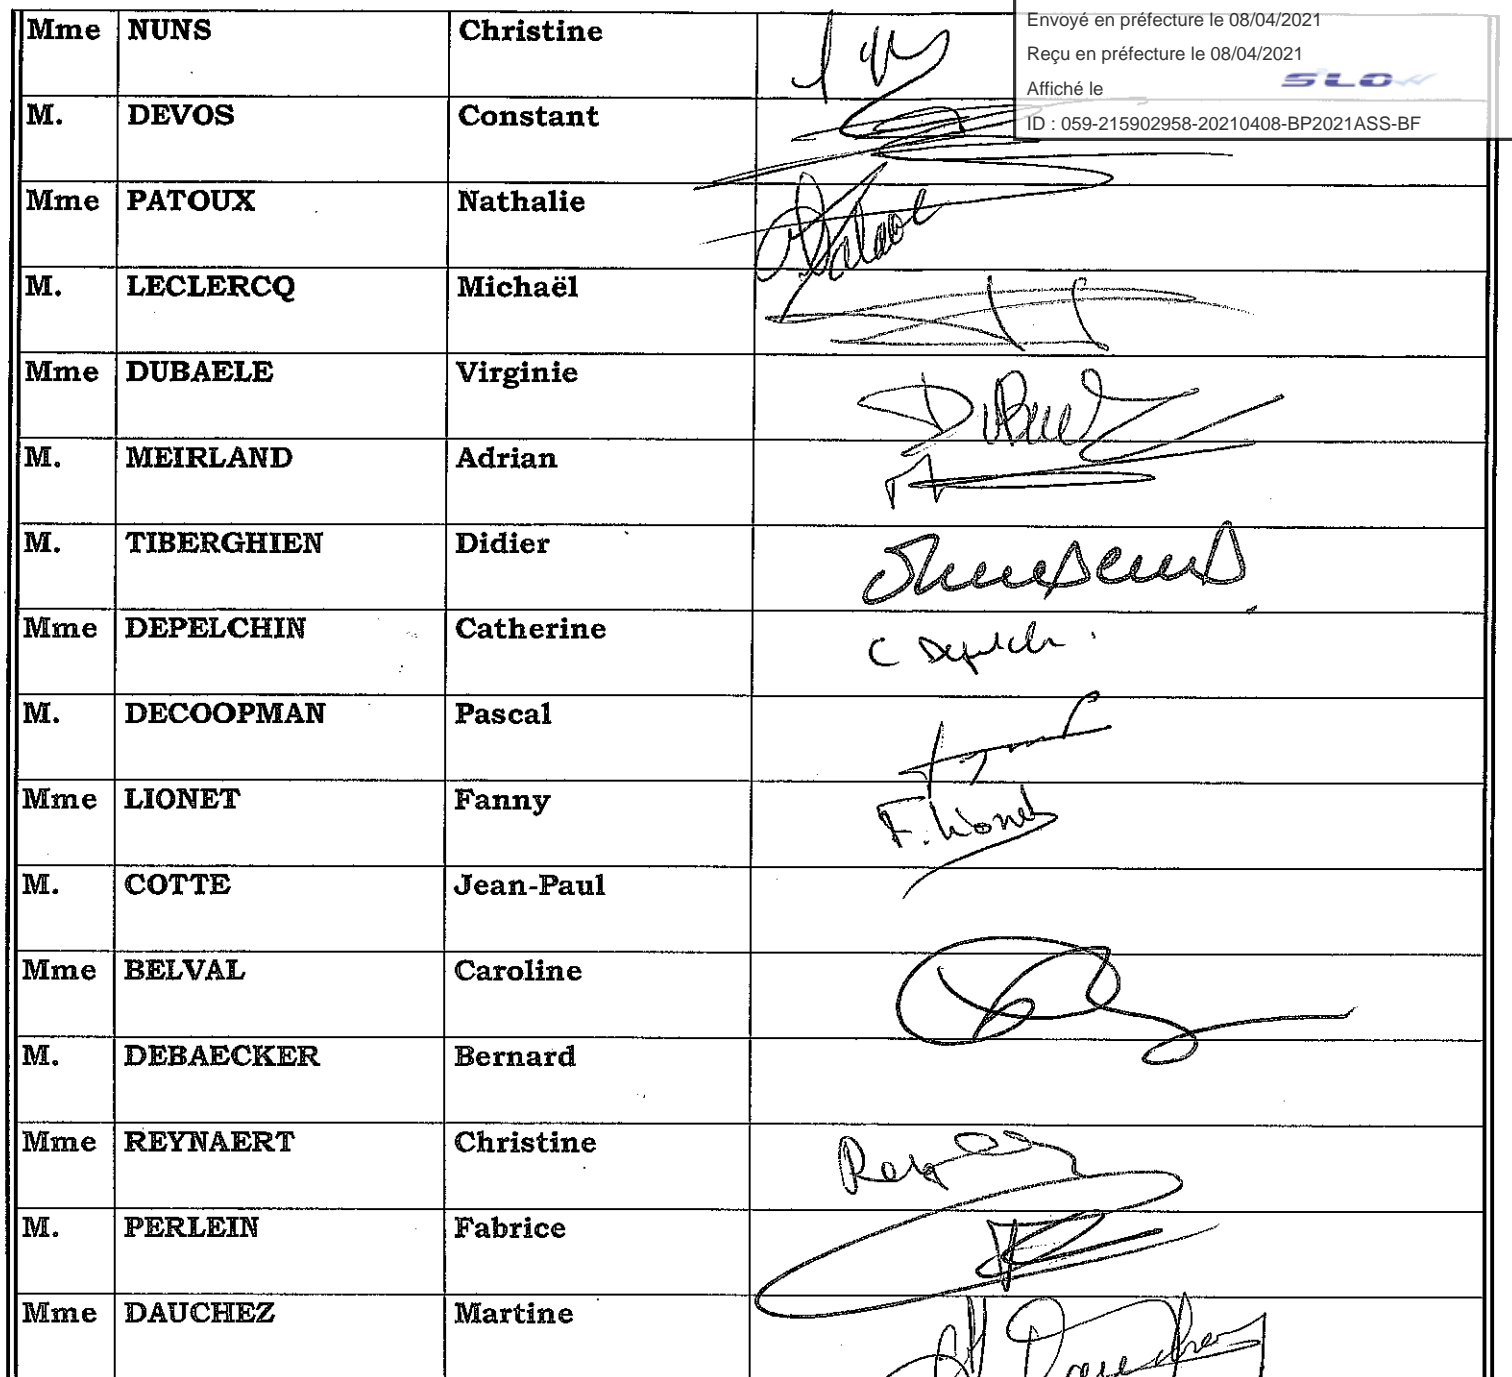 Envoyé en préfecture le 08/04/2021
Reçu en préfecture le 08/04/2021
Affiché le
SLO
ID : 059-215902958-20210408-BP2021ASS-BF
Mme NUNS Christine
M. DEVOS Constant
Mme PATOUX Nathalie
M. LECLERCQ Michaël
Mme DUBAELE Virginie
M. MEIRLAND Adrian
M. TIBERGHIEN Didier
Mme DEPELCHIN Catherine C Depelch
M. DECOOPMAN Pascal
Mme LIONET Fanny F. Lionet
M. COTTE Jean-Paul
Mme BELVAL Caroline
M. DEBAECKER Bernard
Mme REYNAERT Christine
M. PERLEIN Fabrice
Mme DAUCHEZ Martine Dauchez